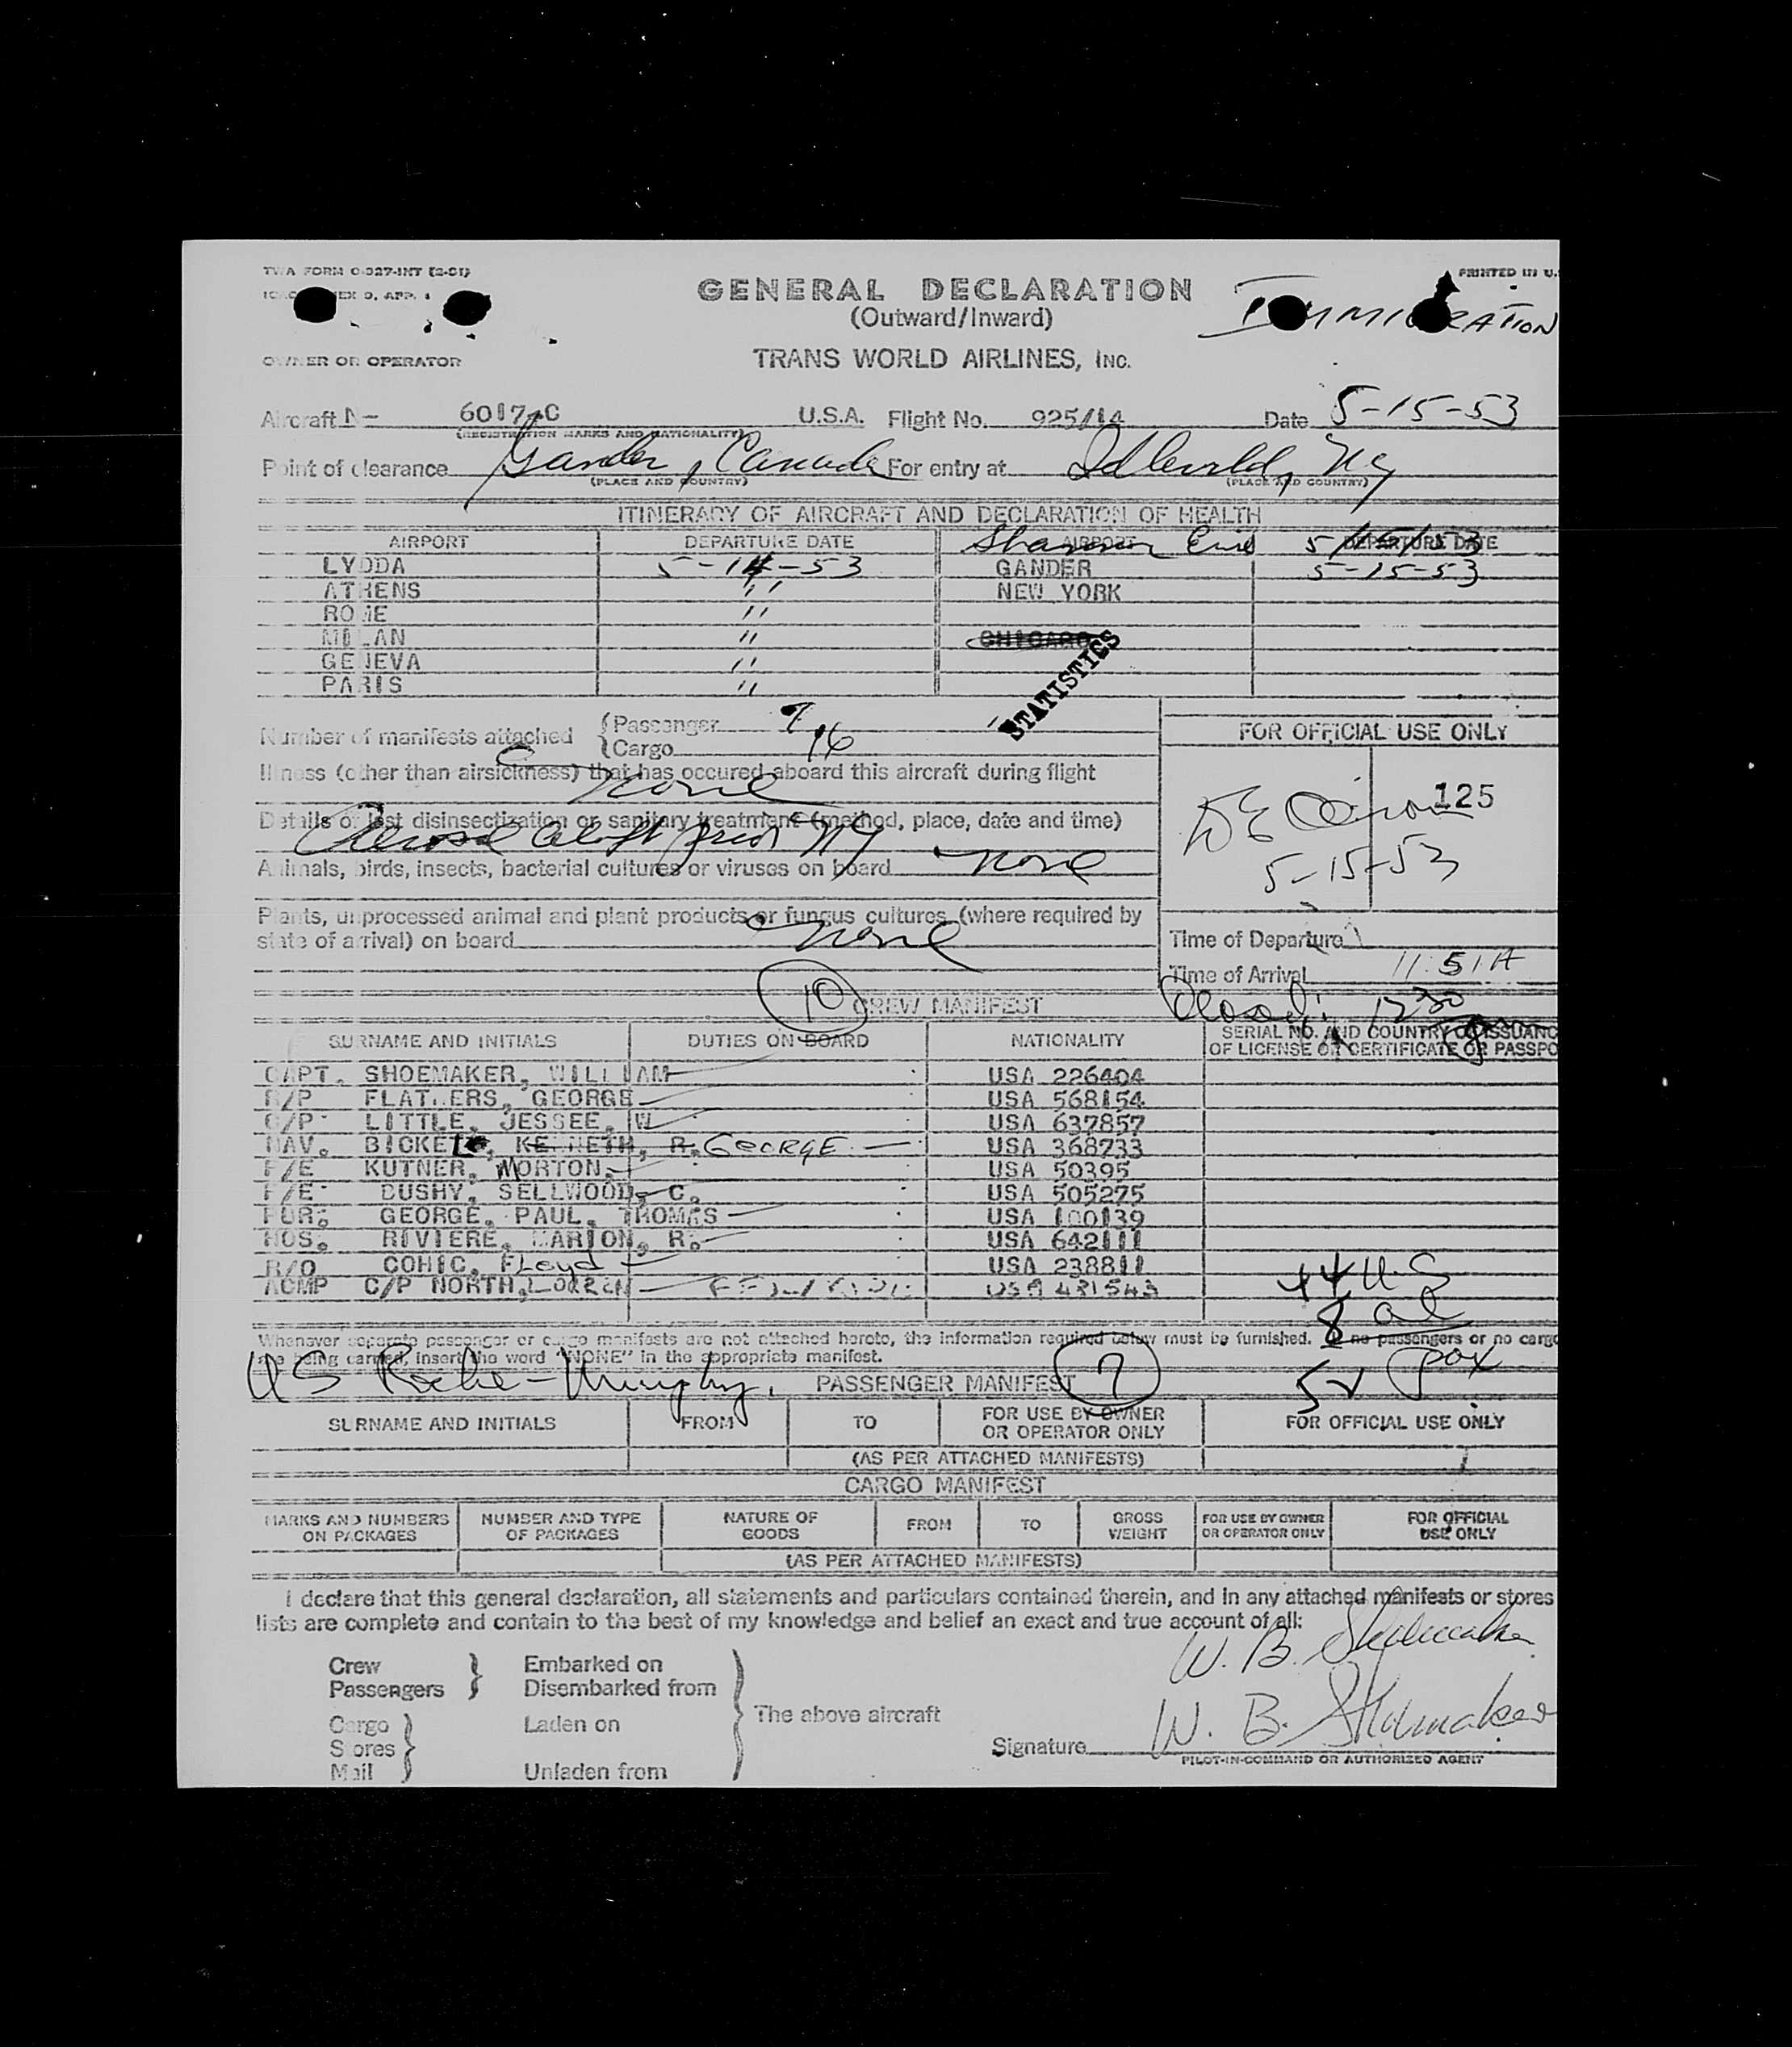 TWA FORM O-327-INT (2-51)
PRINTED IN U.S.
GENERAL DECLARATION
(Outward/Inward)
IMMIGRATION
OWNER OR OPERATOR TRANS WORLD AIRLINES, INC.
Aircraft N- 6017-C U.S.A. Flight No. 925/14 Date 5-15-53
(REGISTRATION MARKS AND NATIONALITY)
Point of clearance Gander, Canada For entry at Idlewild, NY
(PLACE AND COUNTRY) (PLACE AND COUNTRY)
ITINERARY OF AIRCRAFT AND DECLARATION OF HEALTH
AIRPORT DEPARTURE DATE AIRPORT Shannon Eire DEPARTURE DATE 5/15/53
LYDDA 5-14-53 GANDER 5-15-53
ATHENS " NEW YORK
ROME "
MILAN " CHICAGO
GENEVA "
PARIS "
STATISTICS
Number of manifests attached Passenger 7
Cargo 16
FOR OFFICIAL USE ONLY
Illness (other than airsickness) that has occured aboard this aircraft during flight
None
125
Details of last disinsectization or sanitary treatment (method, place, date and time)
Aerosol aloft prior NY
5-15-53
Animals, birds, insects, bacterial cultures or viruses on board None
Plants, unprocessed animal and plant products or fungus cultures (where required by
state of arrival) on board None
Time of Departure
Time of Arrival 11:51A
Closed: 12 30
10 CREW MANIFEST
SURNAME AND INITIALS DUTIES ON BOARD NATIONALITY SERIAL NO. AND COUNTRY OF ISSUANC
OF LICENSE OR CERTIFICATE OR PASSPO
CAPT. SHOEMAKER, WILLIAM USA 226404
R/P FLATHERS, GEORGE USA 568154
C/P LITTLE, JESSEE, W USA 637857
NAV. BICKEL, KENNETH, R. GEORGE USA 368733
F/E KUTNER, MORTON. USA 50395
F/E BUSHY, SELLWOOD, C. USA 505275
PUR. GEORGE, PAUL, THOMAS USA 100139
HOS. RIVIERE, MARION, R. USA 642111
R/O COHIC, FLoyd USA 238811
ACMP C/P NORTH, LOREN USA 431543
44 U.S
8 al
Whenever separate passenger or cargo manifests are not attached hereto, the information required below must be furnished. If no passengers or no cargo
are being carried, insert the word "NONE" in the appropriate manifest.
US Roche-Murphy. PASSENGER MANIFEST 7 52 pax
SURNAME AND INITIALS FROM TO FOR USE BY OWNER
OR OPERATOR ONLY FOR OFFICIAL USE ONLY
(AS PER ATTACHED MANIFESTS)
CARGO MANIFEST
MARKS AND NUMBERS
ON PACKAGES NUMBER AND TYPE
OF PACKAGES NATURE OF
GOODS FROM TO GROSS
WEIGHT FOR USE BY OWNER
OR OPERATOR ONLY FOR OFFICIAL
USE ONLY
(AS PER ATTACHED MANIFESTS)
I declare that this general declaration, all statements and particulars contained therein, and in any attached manifests or stores
lists are complete and contain to the best of my knowledge and belief an exact and true account of all:
W. B. Shoemaker
Crew Embarked on
Passengers Disembarked from
Cargo Laden on The above aircraft
Stores
Signature W. B. Shoemaker
Mail Unladen from PILOT-IN-COMMAND OR AUTHORIZED AGENT